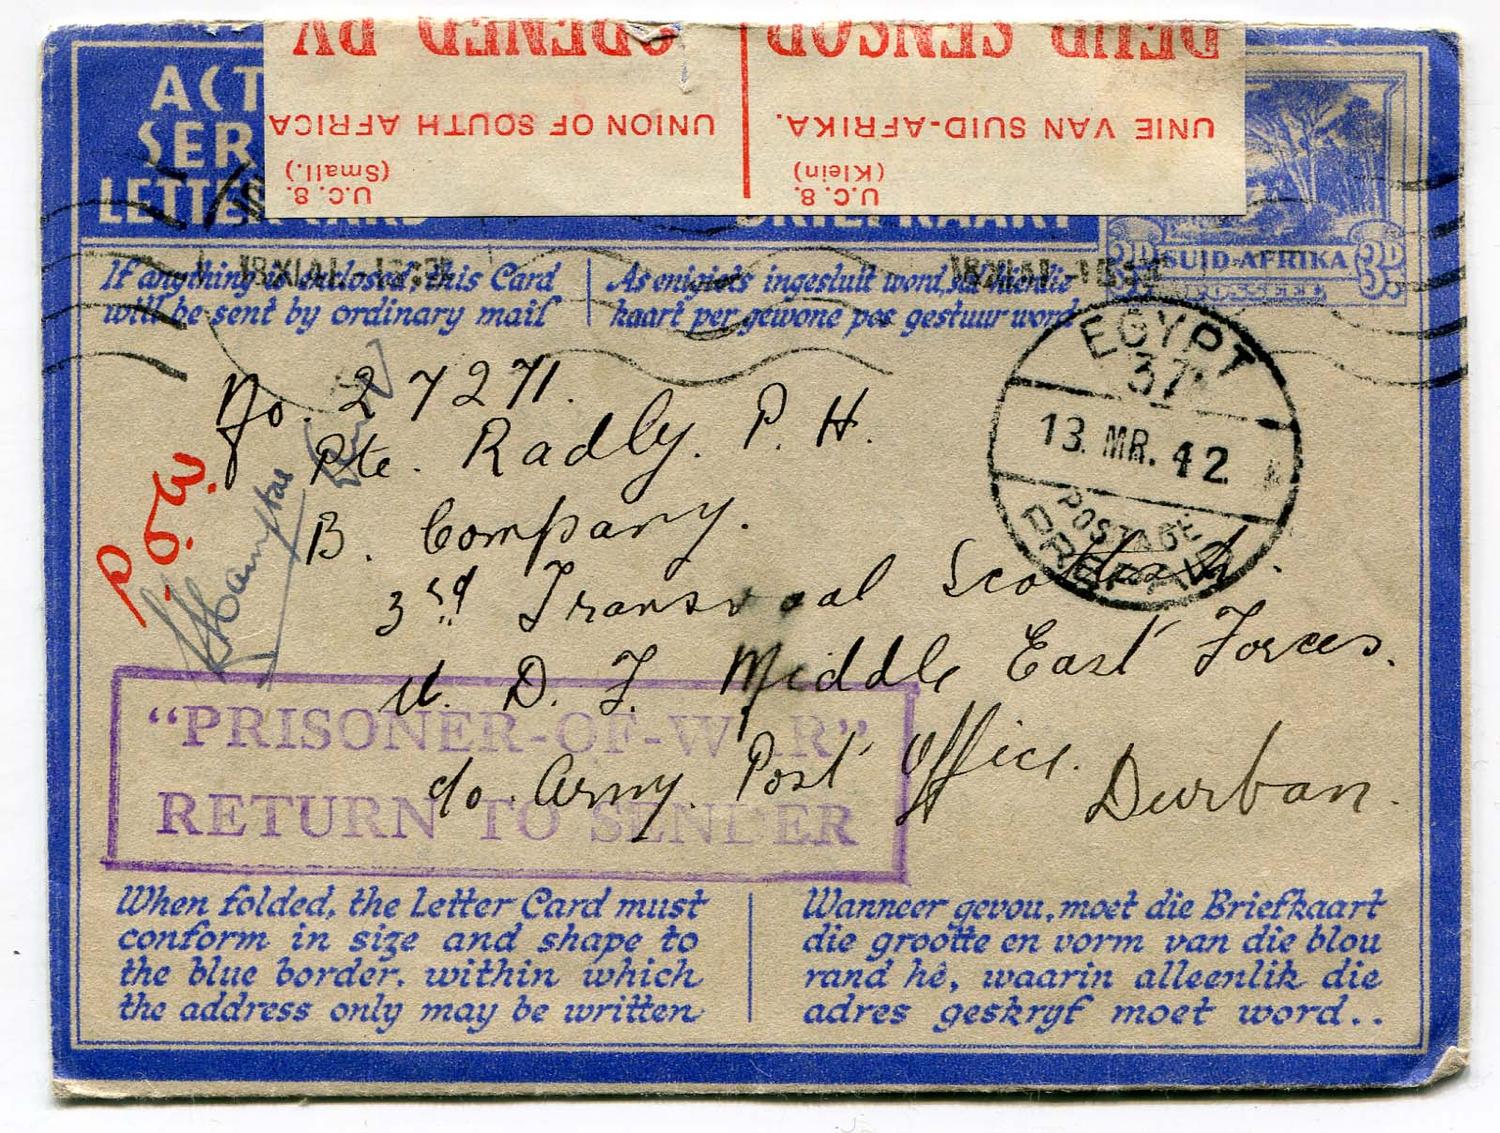 OPENED BY
DEUR SENSOR
UNION OF SOUTH AFRICA
UNIE VAN SUID-AFRIKA.
(Small.)
(Klein)
U.C. 8.
U.C. 8.
ACT
SER
LETTER CARD
BRIEFKAART
SUID-AFRIKA
3D 3D
POSSEEL
If anything is enclosed, this Card
will be sent by ordinary mail
As enigiets ingesluit word, sal hierdie
kaart per gewone pos gestuur word
EGYPT
37
13. MR. 42
POSTAGE
PREPAID
No. 27271.
Pte. Radly. P. H.
B. Company.
3rd Transvaal Scottish.
U. D. F. Middle East Forces.
c/o. Army. Post Office.
Durban.
P.O.W.
"PRISONER-OF-WAR"
RETURN TO SENDER
When folded, the Letter Card must
conform in size and shape to
the blue border, within which
the address only may be written
Wanneer gevou, moet die Briefkaart
die grootte en vorm van die blou
rand hê, waarin alleenlik die
adres geskryf moet word..